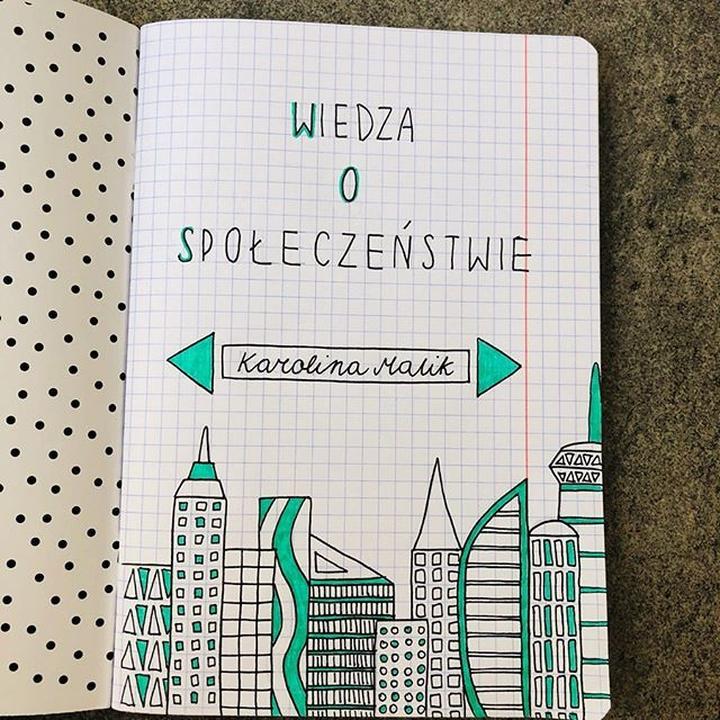 WIEDZA
O
SPOŁECZEŃSTWIE
Karolina Malik